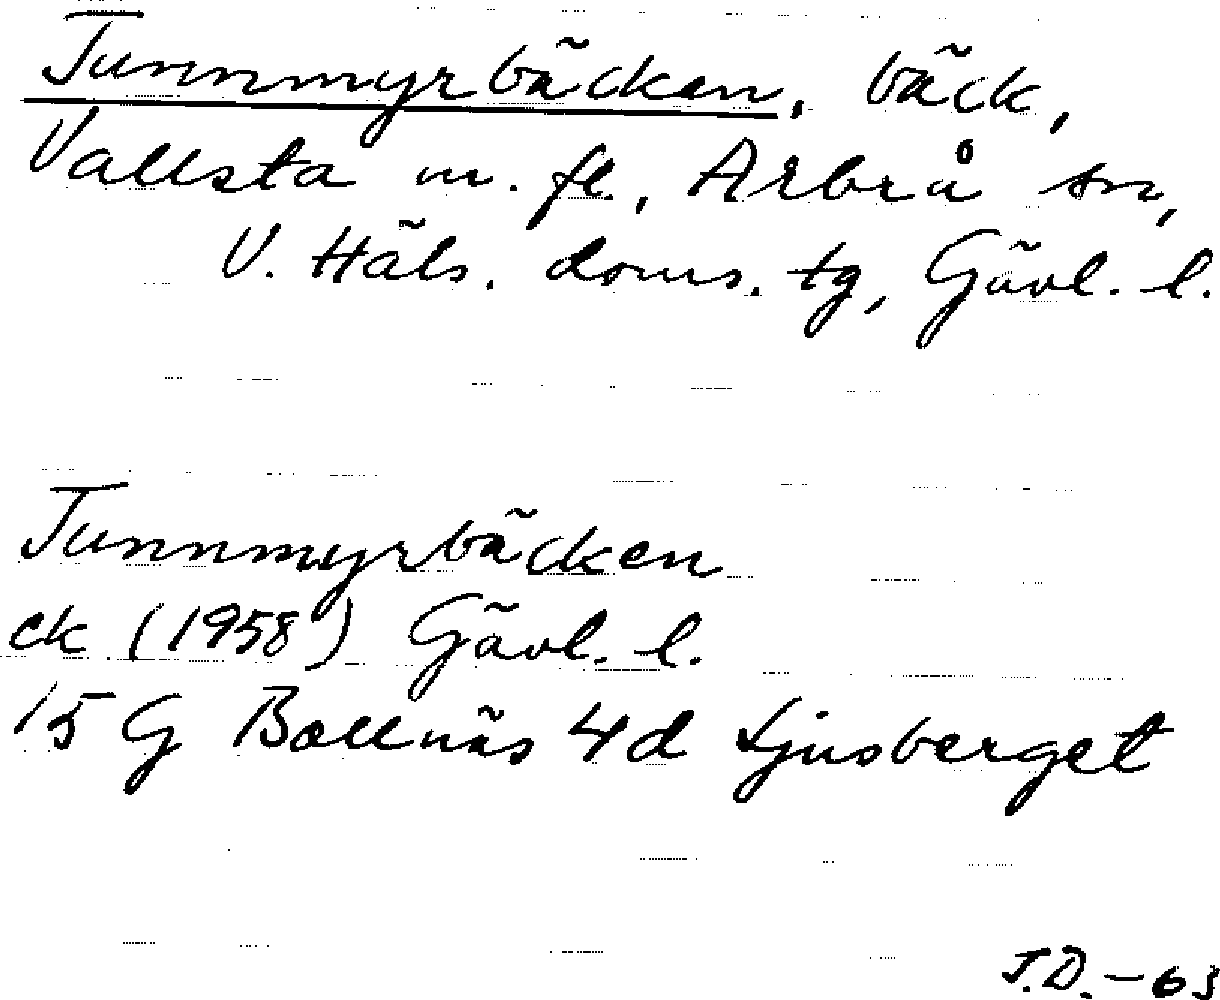 Tunnmyrbäcken, bäck,
Vallsta m. fl., Arbrå sn,
V. Häls. doms. tg, Gävl. l.
Tunnmyrbäcken
ek (1958) Gävl. l.
15 G Bollnäs 4d Ljusberget
J.D.-63